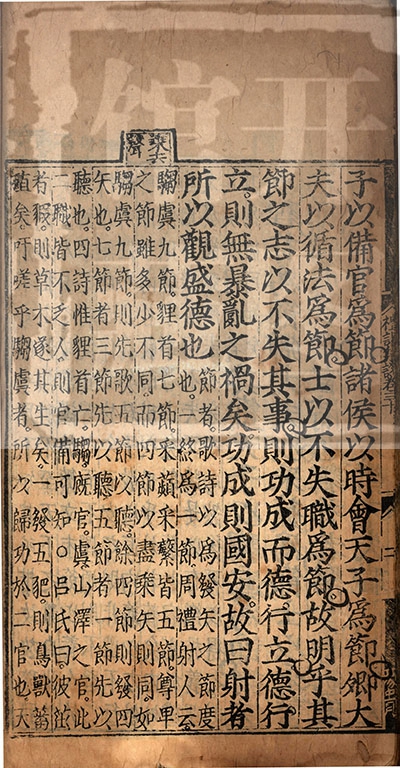 子以備官爲節諸侯以時會天子爲節卿大
夫以循法爲節士以不失職爲節故明乎其
節之志以不失其事則功成而德行立德行
立則無暴亂之禍矣功成則國安故曰射者
所以觀盛德也
節者。歌詩以爲發矢之節度
也。一終爲一節。周禮射人云。
騶虞九節。貍首七節。采蘋采蘩皆五節。尊卑
之節雖多少不同。而四節以盡乘矢則同。如
騶虞九節。則先歌五節以聽。餘四節則發四
矢也。七節者三節先以聽。五節者一節先以
聽也。四詩惟貍首亡。騶。廐官。虞。山澤之官。此
二職皆不乏人。則官備可知。○呂氏曰。彼茁
者葭。則草木遂其生矣。一發五豝。則鳥獸蕃
殖矣。吁嗟乎騶虞者。所以歸功於二官也。天